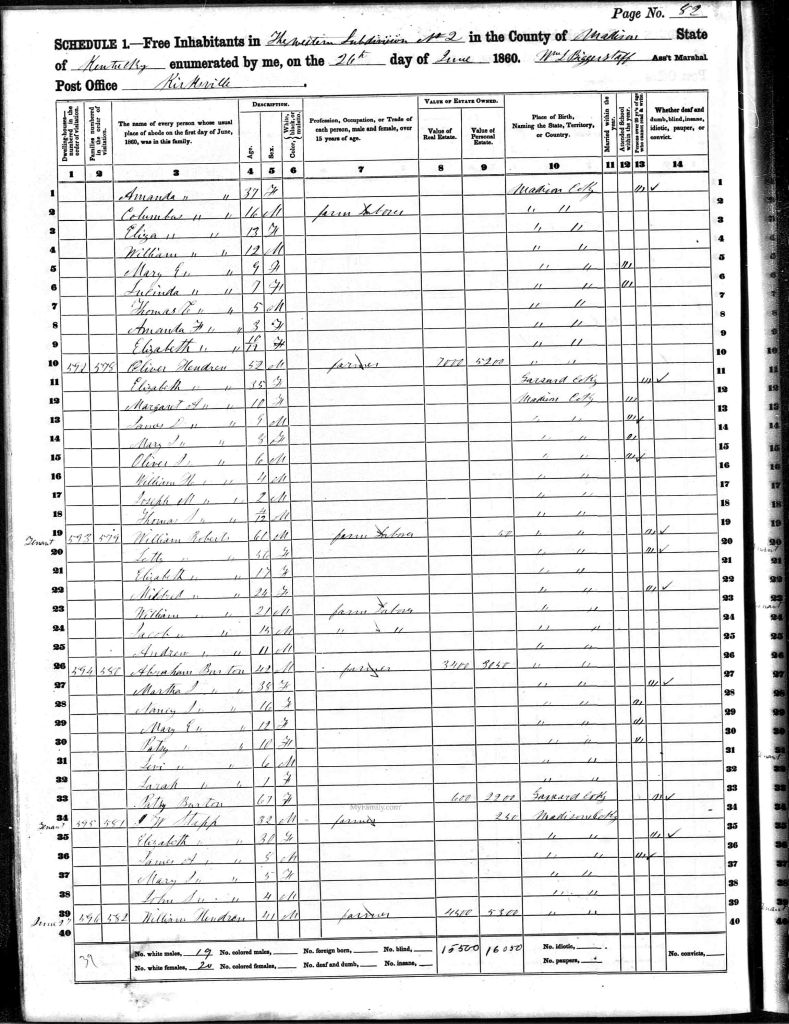 Page No. 82
SCHEDULE 1.—Free Inhabitants in The Western Subdivision No 2 in the County of Madison State
of Kentucky enumerated by me, on the 26th day of June 1860. Wm L Biggerstaff Ass't Marshal
Post Office Kirksville.
Dwelling-houses—numbered in the order of visitation.
Families numbered in the order of visitation.
The name of every person whose usual place of abode on the first day of June, 1860, was in this family.
DESCRIPTION.
Age.
Sex.
Color, White, black, or mulatto.
Profession, Occupation, or Trade of each person, male and female, over 15 years of age.
VALUE OF ESTATE OWNED.
Value of Real Estate.
Value of Personal Estate.
Place of Birth, Naming the State, Territory, or Country.
Married within the year.
Attended School within the year.
Persons over 20 y'rs of age who cannot read & write.
Whether deaf and dumb, blind, insane, idiotic, pauper, or convict.
1 2 3 4 5 6 7 8 9 10 11 12 13 14
1 Amanda " " 37 F Madison Co Ky 1
2 Columbus " " 16 M farm Labor " " 2
3 Eliza " " 13 F " " 3
4 William " " 12 M " " 4
5 Mary E " " 9 F " " 5
6 Lucinda " " 7 F " " 6
7 Thomas " " 5 M " " 7
8 Amanda F " " 3 F " " 8
9 Elizabeth " " F " " 9
10 592 578 Oliver Hendren 52 M farmer 7000 5200 " " 10
11 Elizabeth " " 35 F Garrard Co Ky 11
12 Margaret A " " 10 F Madison Co Ky 12
13 James " " 9 M " " 13
14 Mary " " 8 F " " 14
15 Oliver " " 6 M " " 15
16 William H " " 4 M " " 16
17 Joseph M " " 2 M " " 17
18 Thomas " " M " " 18
Tenant 19 593 579 William Roberts 61 M farm Labor " " 19
20 F " " 20
21 Elizabeth " " 17 F " " 21
22 Mildred " " 24 F " " 22
23 William " " 21 M farm Labor " " 23
24 Jacob " " M " " " " 24
25 Andrew " " 11 M " " 25
26 594 580 Abraham Burton 42 M farmer 3400 " " 26
27 Martha " " 38 F " " 27
28 Nancy " " 16 F " " 28
29 Mary E " " 12 F " " 29
30 Patsy " " 10 F " " 30
31 Levi " " 6 M " " 31
32 Sarah " " 1 F " " 32
33 Burton 67 F 600 2200 Garrard Co Ky 33
Tenant 34 595 581 W Stepp 32 M farmer 250 Madison Co Ky 34
35 Elizabeth " " 30 F " " 35
36 James A " " M " " 36
37 Mary " " 5 F " " 37
38 John " " 4 M " " 38
39 596 582 William Hendren 41 M farmer 4500 5300 " " 39
40 40
MyFamily.com
39
No. white males, 19 No. colored males, No. foreign born, No. blind, 15500 16050 No. idiotic, No. convicts,
No. white females, 20 No. colored females, No. deaf and dumb, No. insane, No. paupers,